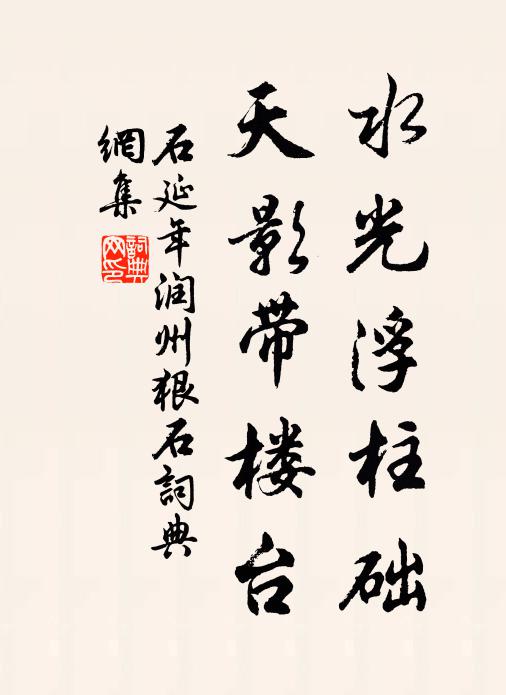 水光浮柱础
天影带楼台
石延年润州狠石詞典
網集
詞典
网印